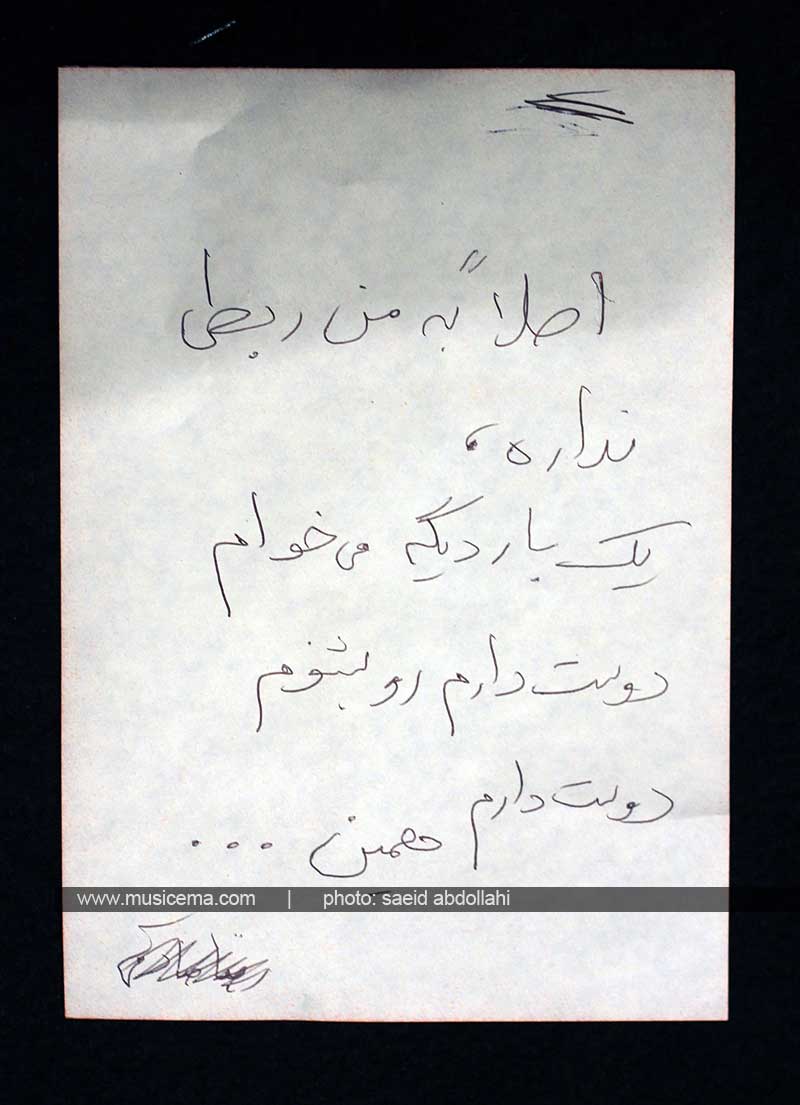 اصلاً به من ربطی
نداره،
یک بار دیگه می‌خوام
دوست دارم رو بشنوم
دوست دارم
همین ...
www.musicema.com | photo: saeid abdollahi